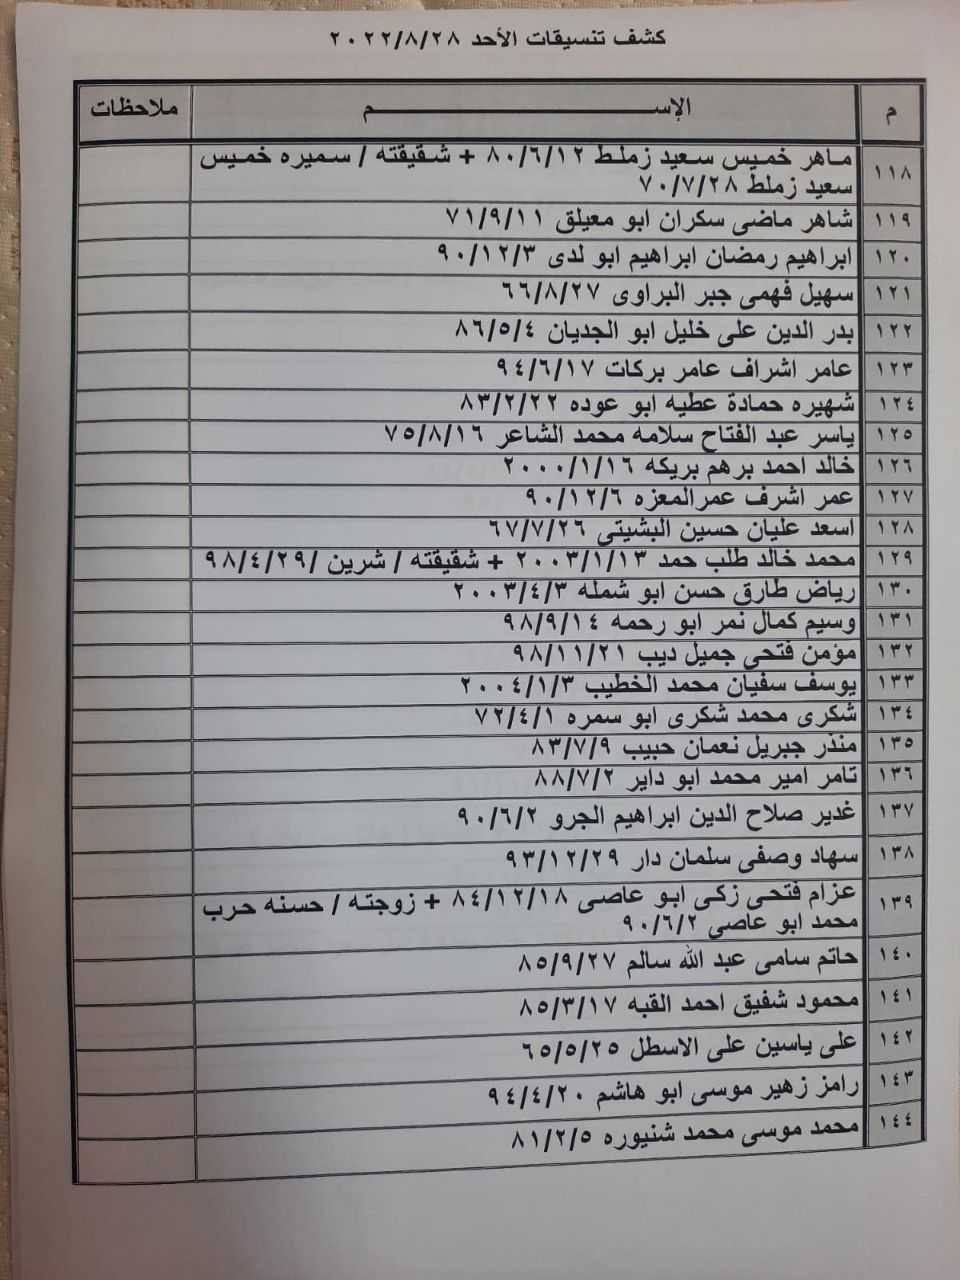 كشف تنسيقات الأحد ٢٠٢٢/٨/٢٨
م الإســـــــم ملاحظات
١١٨ ماهر خميس سعيد زملط ٨٠/٦/١٢ + شقيقته / سميره خميس
سعيد زملط ٧٠/٧/٢٨
١١٩ شاهر ماضى سكران ابو معيلق ٧١/٩/١١
١٢٠ ابراهيم رمضان ابراهيم ابو لدى ٩٠/١٢/٣
١٢١ سهيل فهمى جبر البراوى ٦٦/٨/٢٧
١٢٢ بدر الدين على خليل ابو الجديان ٨٦/٥/٤
١٢٣ عامر اشراف عامر بركات ٩٤/٦/١٧
١٢٤ شهيره حمادة عطيه ابو عوده ٨٣/٢/٢٢
١٢٥ ياسر عبد الفتاح سلامه محمد الشاعر ٧٥/٨/١٦
١٢٦ خالد احمد برهم بريكه ٢٠٠٠/١/١٦
١٢٧ عمر اشرف عمرالمعزه ٩٠/١٢/٦
١٢٨ اسعد عليان حسين البشيتي ٦٧/٧/٢٦
١٢٩ محمد خالد طلب حمد ٢٠٠٣/١/١٣ + شقيقته / شرين /٩٨/٤/٢٩
١٣٠ رياض طارق حسن ابو شمله ٢٠٠٣/٤/٣
١٣١ وسيم كمال نمر ابو رحمه ٩٨/٩/١٤
١٣٢ مؤمن فتحى جميل ديب ٩٨/١١/٢١
١٣٣ يوسف سفيان محمد الخطيب ٢٠٠٤/١/٣
١٣٤ شكرى محمد شكرى ابو سمره ٧٢/٤/١
١٣٥ منذر جبريل نعمان حبيب ٨٣/٧/٩
١٣٦ تامر امير محمد ابو داير ٨٨/٧/٢
١٣٧ غدير صلاح الدين ابراهيم الجرو ٩٠/٦/٢
١٣٨ سهاد وصفى سلمان دار ٩٣/١٢/٢٩
١٣٩ عزام فتحى زكى ابو عاصى ٨٤/١٢/١٨ + زوجته / حسنه حرب
محمد ابو عاصي ٩٠/٦/٢
١٤٠ حاتم سامى عبد الله سالم ٨٥/٩/٢٧
١٤١ محمود شفيق احمد القبه ٨٥/٣/١٧
١٤٢ على ياسين على الاسطل ٦٥/٥/٢٥
١٤٣ رامز زهير موسى ابو هاشم ٩٤/٤/٢٠
١٤٤ محمد موسى محمد شنيوره ٨١/٢/٥